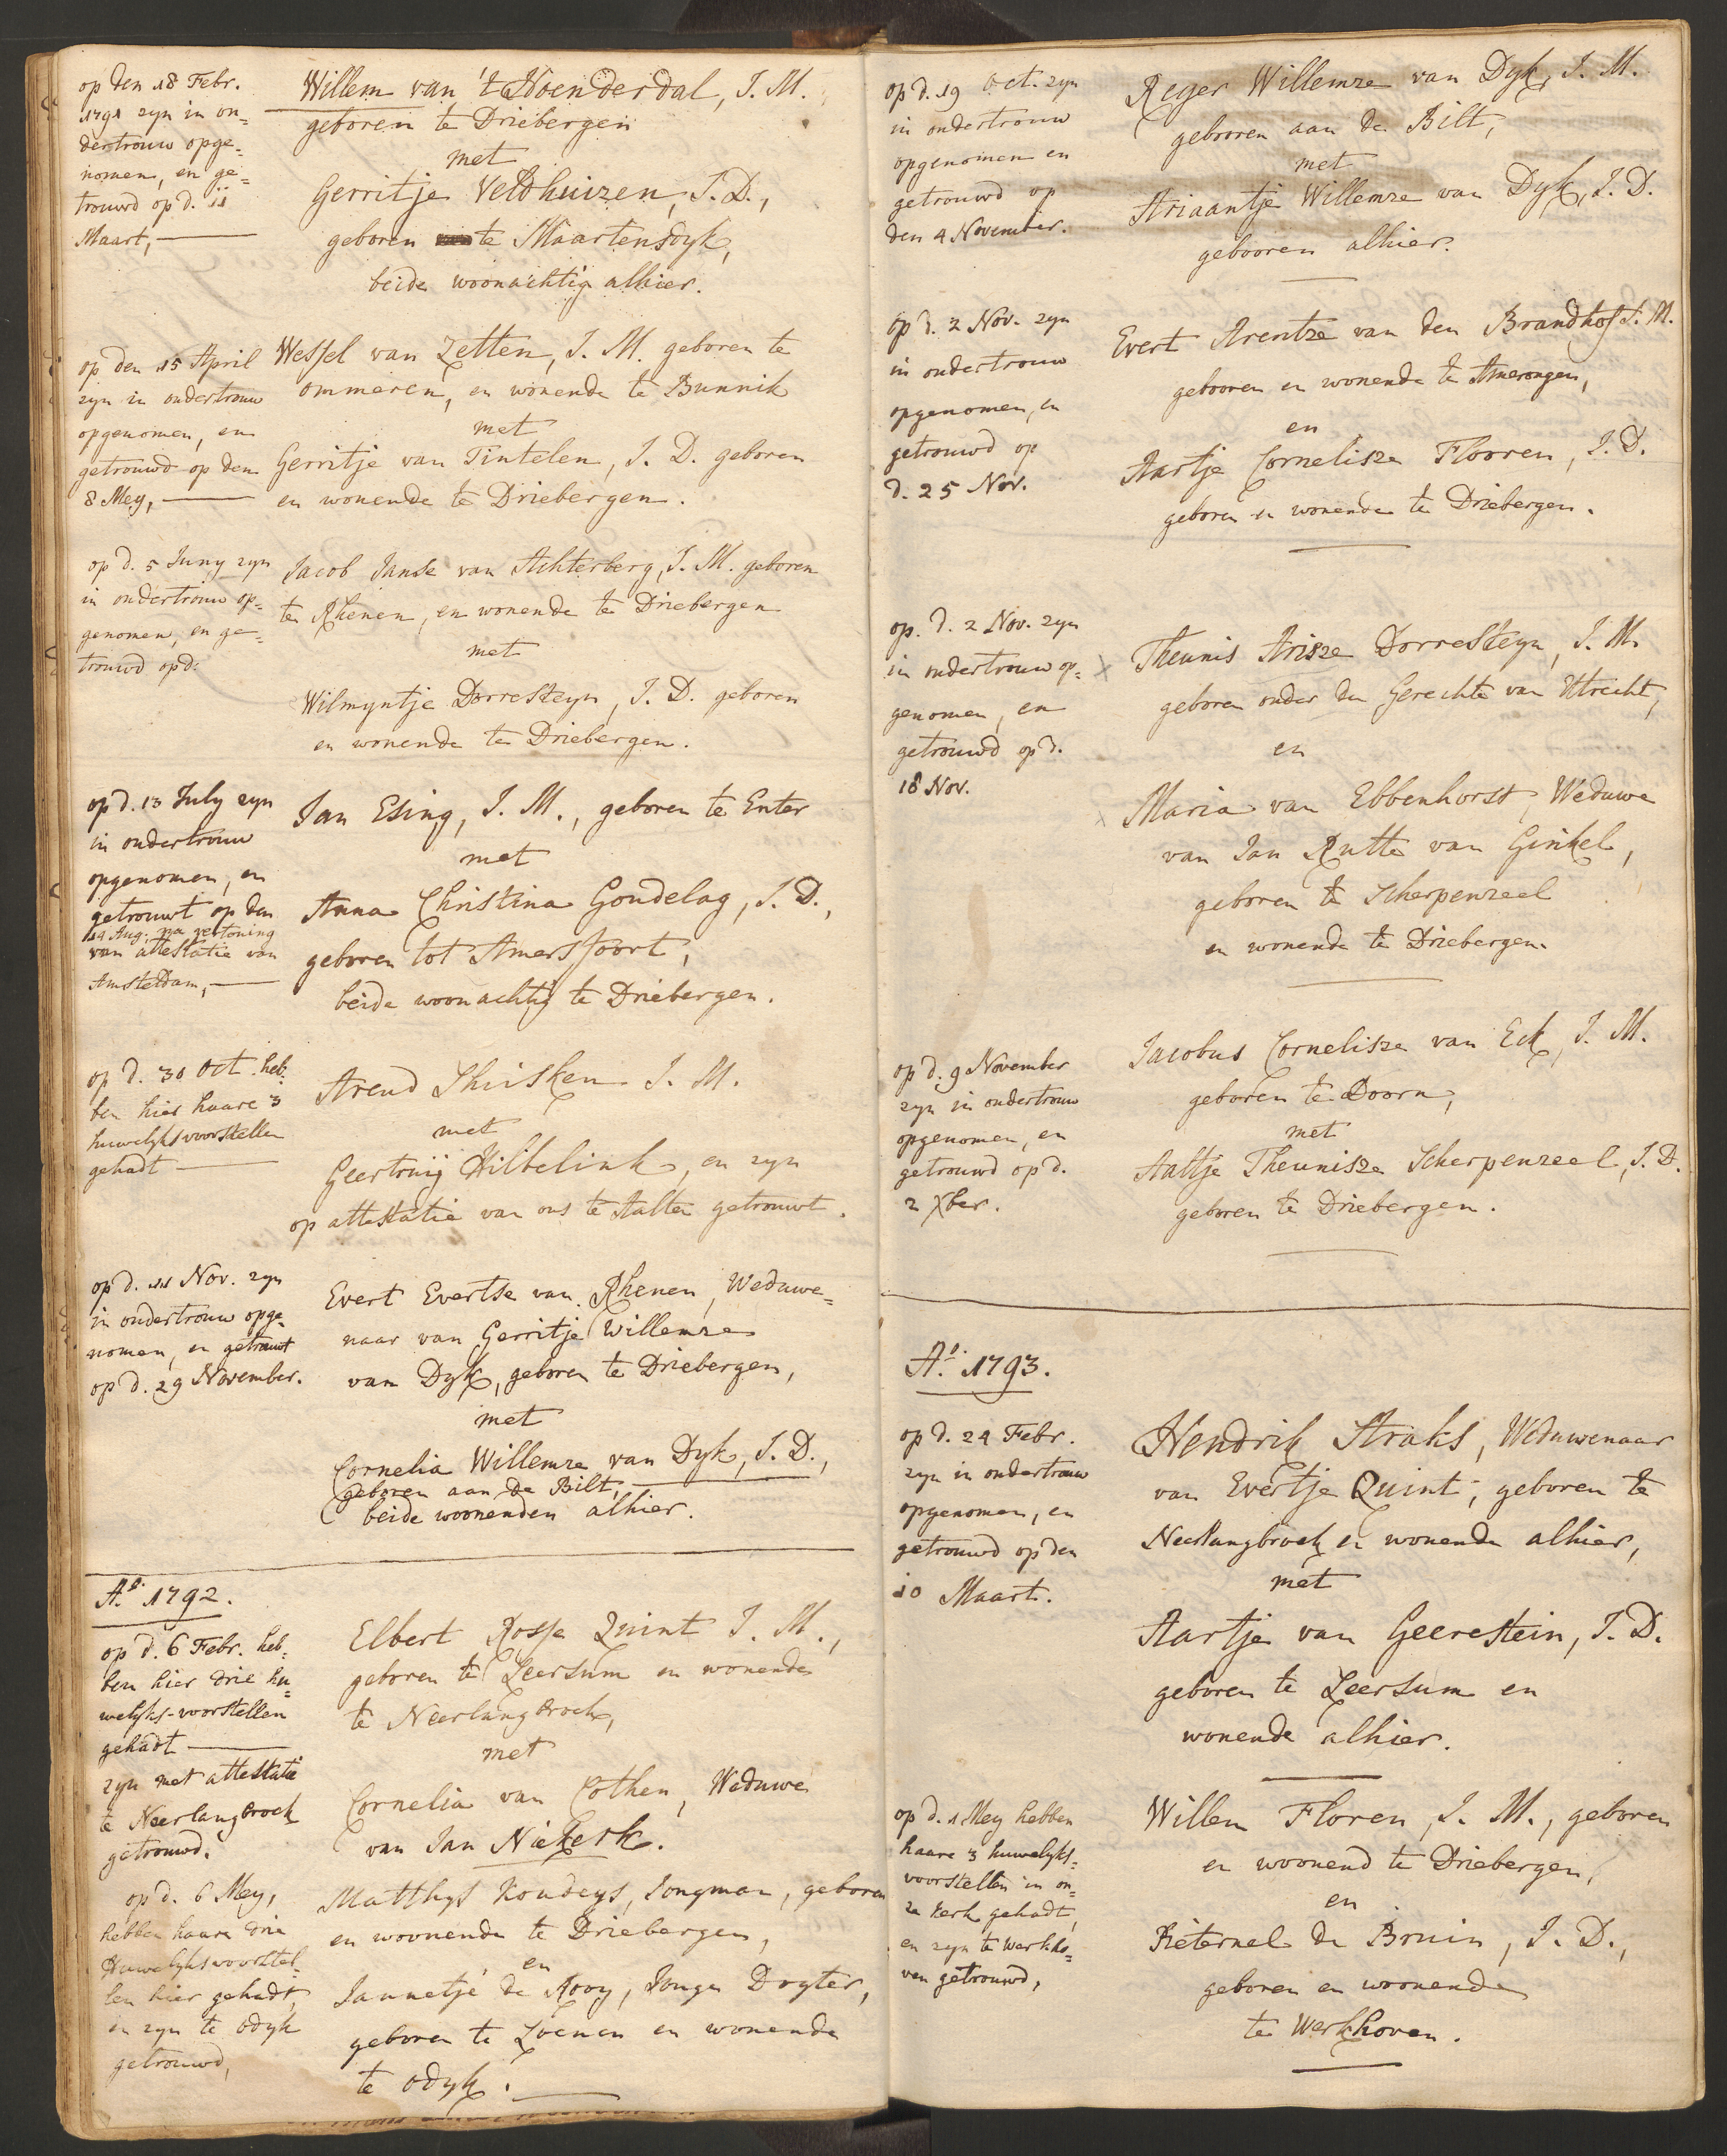 op den 18 Febr.
1791 zyn in on=
dertrouw opge=
nomen, en ge=
trouwd op d. 11
Maart,
Willem van 't Hoenderdal, J. M.
geboren te Driebergen
met
Gerritje Veldhuizen, J. D.,
geboren te Maartensdyk,
beide woonachtig alhier.
op den 15 April
zyn in ondertrouw
opgenomen, en
getrouwd op den
8 Mey,
Wessel van Zetten, J. M. geboren te
ommeren, en wonende te Bunnik
met
Gerritje van Tintelen, J. D. geboren
en wonende te Driebergen.
op d. 5 Juny zyn
in ondertrouw op=
genomen, en ge=
trouwd op d:
Jacob Janse van Achterberg, J. M. geboren
te Rhenen, en wonende te Driebergen
met
Wilmyntje Dorresteyn, J. D. geboren
en wonende te Driebergen.
op d. 13 July zyn
in ondertrouw
opgenomen, en
getrouwt op den
14 Aug: na vertoning
van attestatie van
Amsteldam,
Jan Esing, J. M., geboren te Enter
met
Anna Christina Goudelag, J. D.,
geboren tot Amersfoort,
beide woonachtig te Driebergen.
op d. 30 Oct. heb=
ben hier haare 3
huwelyksvoorstellen
gehadt
Arend J. M.
met
Geertruij Hilbelink, en zyn
op attestatie van ons te Aalten getrouwt.
op d. 11 Nov. zyn
in ondertrouw opge=
nomen, en getrouwt
op d. 29 November.
Evert Evertse van Rhenen, Weduwe=
naar van Gerritje Willemze
van Dyk, geboren te Driebergen,
met
Cornelia Willemze van Dyk, J. D.,
geboren aan de Bilt,
beide woonenden alhier.
Ao. 1792.
op d. 6 Febr. heb=
ben hier drie hu=
welyks-voorstellen
gehadt
zyn met attestatie
te Neerlangbroek
getrouwd.
Elbert Rosse Quint J. M.,
geboren te Leersum en wonende
te Neerlangbroek,
met
Cornelia van Cothen, Weduwe
van Jan Niekerk.
op d. 6 Mey,
hebben haare drie
Huwelyksvoorstel=
len hier gehadt,
en zyn te Odyk
getrouwd,
Matthys Koudeys, Jongman, geboren
en woonende te Driebergen,
en
Jannetje de Rooy, Jonge Dogter,
geboren te Loenen en wonende
te Odyk.
op d. 19 Oct. zyn
in ondertrouw
opgenomen en
getrouwd op
den 4 November.
Reger Willemze van Dyk, J. M.
gebooren aan de Bilt,
met
Ariaantje Willemze van Dyk, J. D.
gebooren alhier.
op d. 2 Nov. zyn
in ondertrouw
opgenomen, en
getrouwd op
d. 25 Nov.
Evert Arentze van den Brandhof J. M.
gebooren en wonende te Amerongen,
en
Aartje Cornelisze Flooren, J. D.
geboren en wonende te Driebergen.
op. d. 2 Nov. zyn
in ondertrouw op=
genomen, en
getrouwd op d.
18 Nov.
Theunis Arisze Dorresteyn, J. M.
geboren onder de Gerechte van Utrecht,
en
Maria van Ebbenhorst, Weduwe
van Jan Rutte van Ginkel,
geboren te Scherpenzeel
en wonende te Driebergen.
op d. 9 November
zyn in ondertrouw
opgenomen, en
getrouwd op d.
2 Xber.
Jacobus Cornelisze van Eck, J. M.
geboren te Doorn,
met
Aaltje Theunisze Scherpenzeel, J. D.
geboren te Driebergen.
Ao. 1793.
op d. 24 Febr.
zyn in ondertrouw
opgenomen, en
getrouwd op den
10 Maart.
Hendrik Straks, Weduwenaar
van Evertje Quint, geboren te
Neerlangbroek en wonende alhier,
met
Aartje van Geerestein, J. D.
geboren te Leersum en
wonende alhier.
op d. 1 Mey hebben
haare 3 huwelyks=
voorstellen in on=
ze kerk gehadt,
en zyn te Werkho=
ven getrouwd,
Willem Floren, J. M., geboren
en woonend te Driebergen,
en
Pieternel de Bruin, J. D.,
geboren en woonende
te Werkhoven.